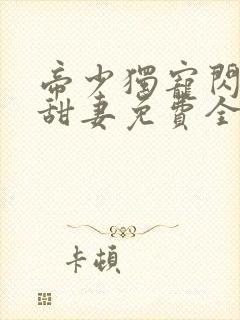 帝少獨寵閃
甜妻免費全
卡頓